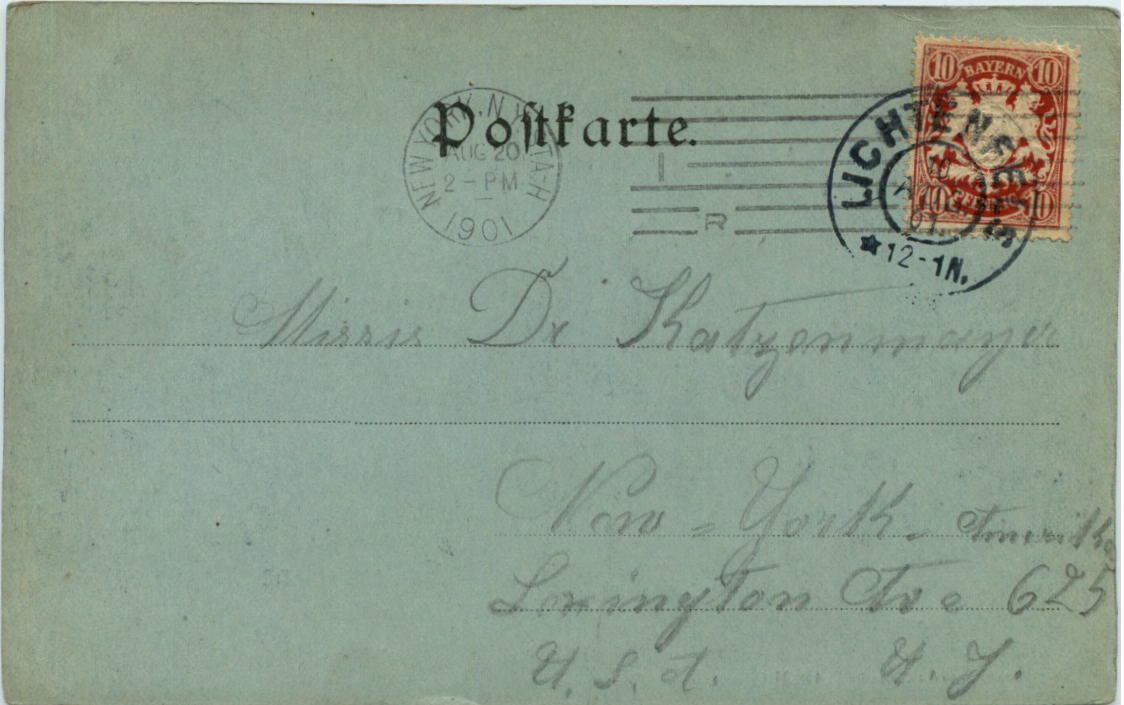 Postkarte.
NEW YORK, N.Y. STA-H
AUG 20
2 - PM
1901
R
10 BAYERN 10
10
LICHTENFELS
10
AUG.
01.
★12-1N.
Missis Dr Katzenmayer
New - York - Amerika
Lexington Ave 625
U. S. A. N. Y.